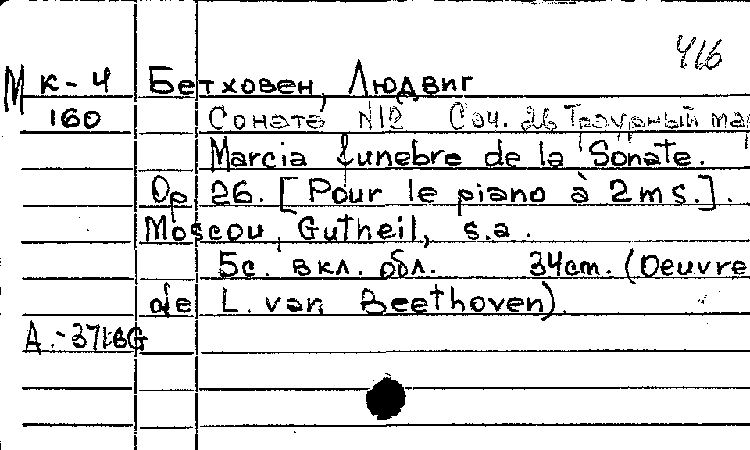 416
М к-4 Бетховен, Людвиг
160 Соната N12 Соч. 26 Траурный мар
Marcia funebre de la Sonate.
Op 26. [Pour le piano à 2 ms.].
Moscou, Gutheil, s.a.
5с. вкл. обл. 34cm. (Oeuvre
de L. van Beethoven).
A.-3716G